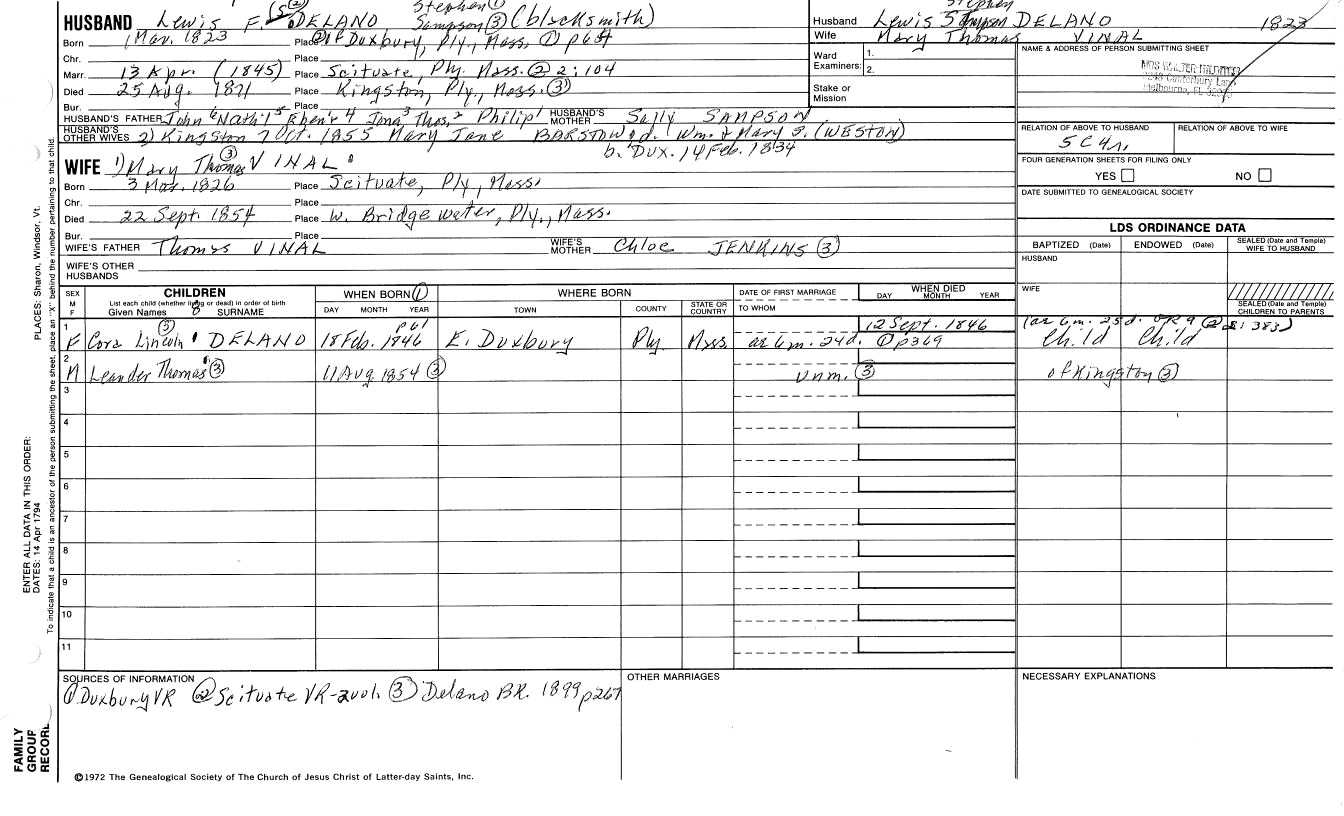 Stephen ①
HUSBAND Lewis F. (S②) DELANO Simpson ③ (blacksmith)
Born 1 Mar. 1823 Place ② of Duxbury, Ply, Mass. ① p64
Chr. Place
Marr. 13 Apr. (1845) Place Scituate, Ply. Mass. ② 2:104
Died 25 Aug. 1871 Place Kingston, Ply., Mass. ③
Bur. Place
HUSBAND'S FATHER John 6 Nath'l 5 Eben'r 4 Jona 3 Thos. 2 Philip 1 HUSBAND'S MOTHER Sally SAMPSON
HUSBAND'S OTHER WIVES 2) Kingston 7 Oct. 1855 Mary Jane BARSTOW d. Wm. & Mary S. (WESTON)
b. Dux. 14 Feb. 1834
WIFE 1) Mary Thomas ③ VINAL
Born 3 Mar. 1826 Place Scituate, Ply, Mass.
Chr. Place
Died 22 Sept. 1854 Place W. Bridgewater, Ply., Mass.
Bur. Place
WIFE'S FATHER Thomas VINAL WIFE'S MOTHER Chloe JENKINS ③
WIFE'S OTHER HUSBANDS
Stephen
Husband Lewis S Simpson DELANO 1823
Wife Mary Thomas VINAL
Ward Examiners: 1. 2.
Stake or Mission
NAME & ADDRESS OF PERSON SUBMITTING SHEET
MRS WALTER
Canterbury Lane
Melbourne, FL
RELATION OF ABOVE TO HUSBAND RELATION OF ABOVE TO WIFE
5C4r.
FOUR GENERATION SHEETS FOR FILING ONLY
YES NO
DATE SUBMITTED TO GENEALOGICAL SOCIETY
LDS ORDINANCE DATA
BAPTIZED (Date) ENDOWED (Date) SEALED (Date and Temple) WIFE TO HUSBAND
HUSBAND
WIFE
SEALED (Date and Temple) CHILDREN TO PARENTS
SEX M F CHILDREN List each child (whether living or dead) in order of birth Given Names SURNAME WHEN BORN ① DAY MONTH YEAR WHERE BORN TOWN COUNTY STATE OR COUNTRY DATE OF FIRST MARRIAGE TO WHOM WHEN DIED DAY MONTH YEAR
1 F Cora Lincoln ③ DELANO 18 Feb. 1846 p61 E. Duxbury Ply. Mass. 12 Sept. 1846 ae 6m. 24d. ① p369 (ae 6m. 25d. OR 9 ② 2: 383) Child Child
2 M Leander Thomas ③ 11 Aug. 1854 ③ Unm. ③ of Kingston ③
3
4
5
6
7
8
9
10
11
SOURCES OF INFORMATION
① Duxbury VR ② Scituate VR-2vol. ③ Delano BK. 1899 p267
OTHER MARRIAGES
NECESSARY EXPLANATIONS
©1972 The Genealogical Society of The Church of Jesus Christ of Latter-day Saints, Inc.
FAMILY GROUP RECORD
ENTER ALL DATA IN THIS ORDER:
DATES: 14 Apr 1794
PLACES: Sharon, Windsor, Vt.
To indicate that a child is an ancestor of the person submitting the sheet, place an "X" behind the number pertaining to that child.